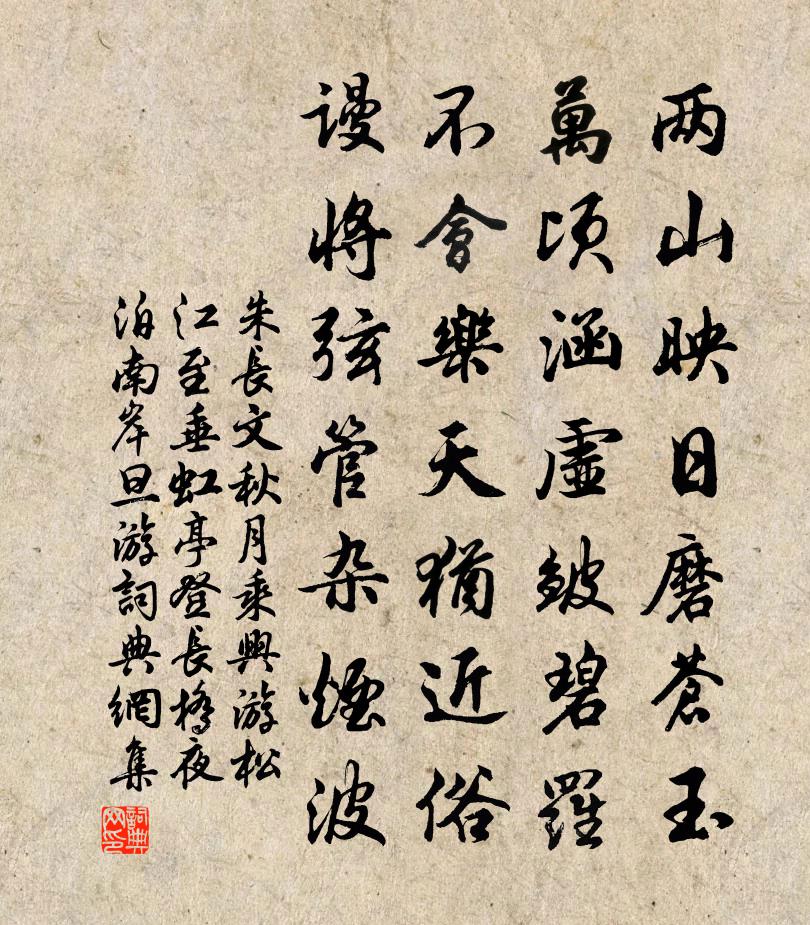 两山映日磨蒼玉
萬頃涵虛皴碧羅
不會樂天猶近俗
謾將弦管杂煙波
朱長文秋月乘興游松
江至垂虹亭登長橋夜
泊南岸旦游詞典網集
詞典
网印